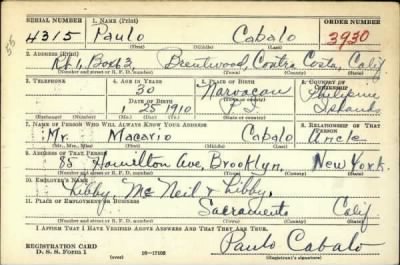 SERIAL NUMBER 1. NAME (Print) ORDER NUMBER
4315 Paulo Cabalo 3930
(First) (Middle) (Last)
2. ADDRESS (Print)
Rt 1, Box 63, Brentwood, Contra Costa, Calif
(Number and street or R. F. D. number) (Town) (County) (State)
3. TELEPHONE 4. AGE IN YEARS 5. PLACE OF BIRTH 6. COUNTRY OF CITIZENSHIP
30 Narvacan Philippine
DATE OF BIRTH (Town or county)
1 25 1910 P. I. Islands
(Exchange) (Number) (Mo.) (Day) (Yr.) (State or country)
7. NAME OF PERSON WHO WILL ALWAYS KNOW YOUR ADDRESS 8. RELATIONSHIP OF THAT PERSON
Mr. Macario Cabalo Uncle
(Mr., Mrs., Miss) (First) (Middle) (Last)
9. ADDRESS OF THAT PERSON
85 Hamilton Ave, Brooklyn, New York.
(Number and street or R. F. D. number) (Town) (County) (State)
10. EMPLOYER'S NAME
Libby, Mc Neil & Libby,
11. PLACE OF EMPLOYMENT OR BUSINESS
Sacramento Calif
(Number and street or R. F. D. number) (Town) (County) (State)
I AFFIRM THAT I HAVE VERIFIED ABOVE ANSWERS AND THAT THEY ARE TRUE.
REGISTRATION CARD
D. S. S. Form 1 (over) 16—17105 Paulo Cabalo
(Registrant's signature)